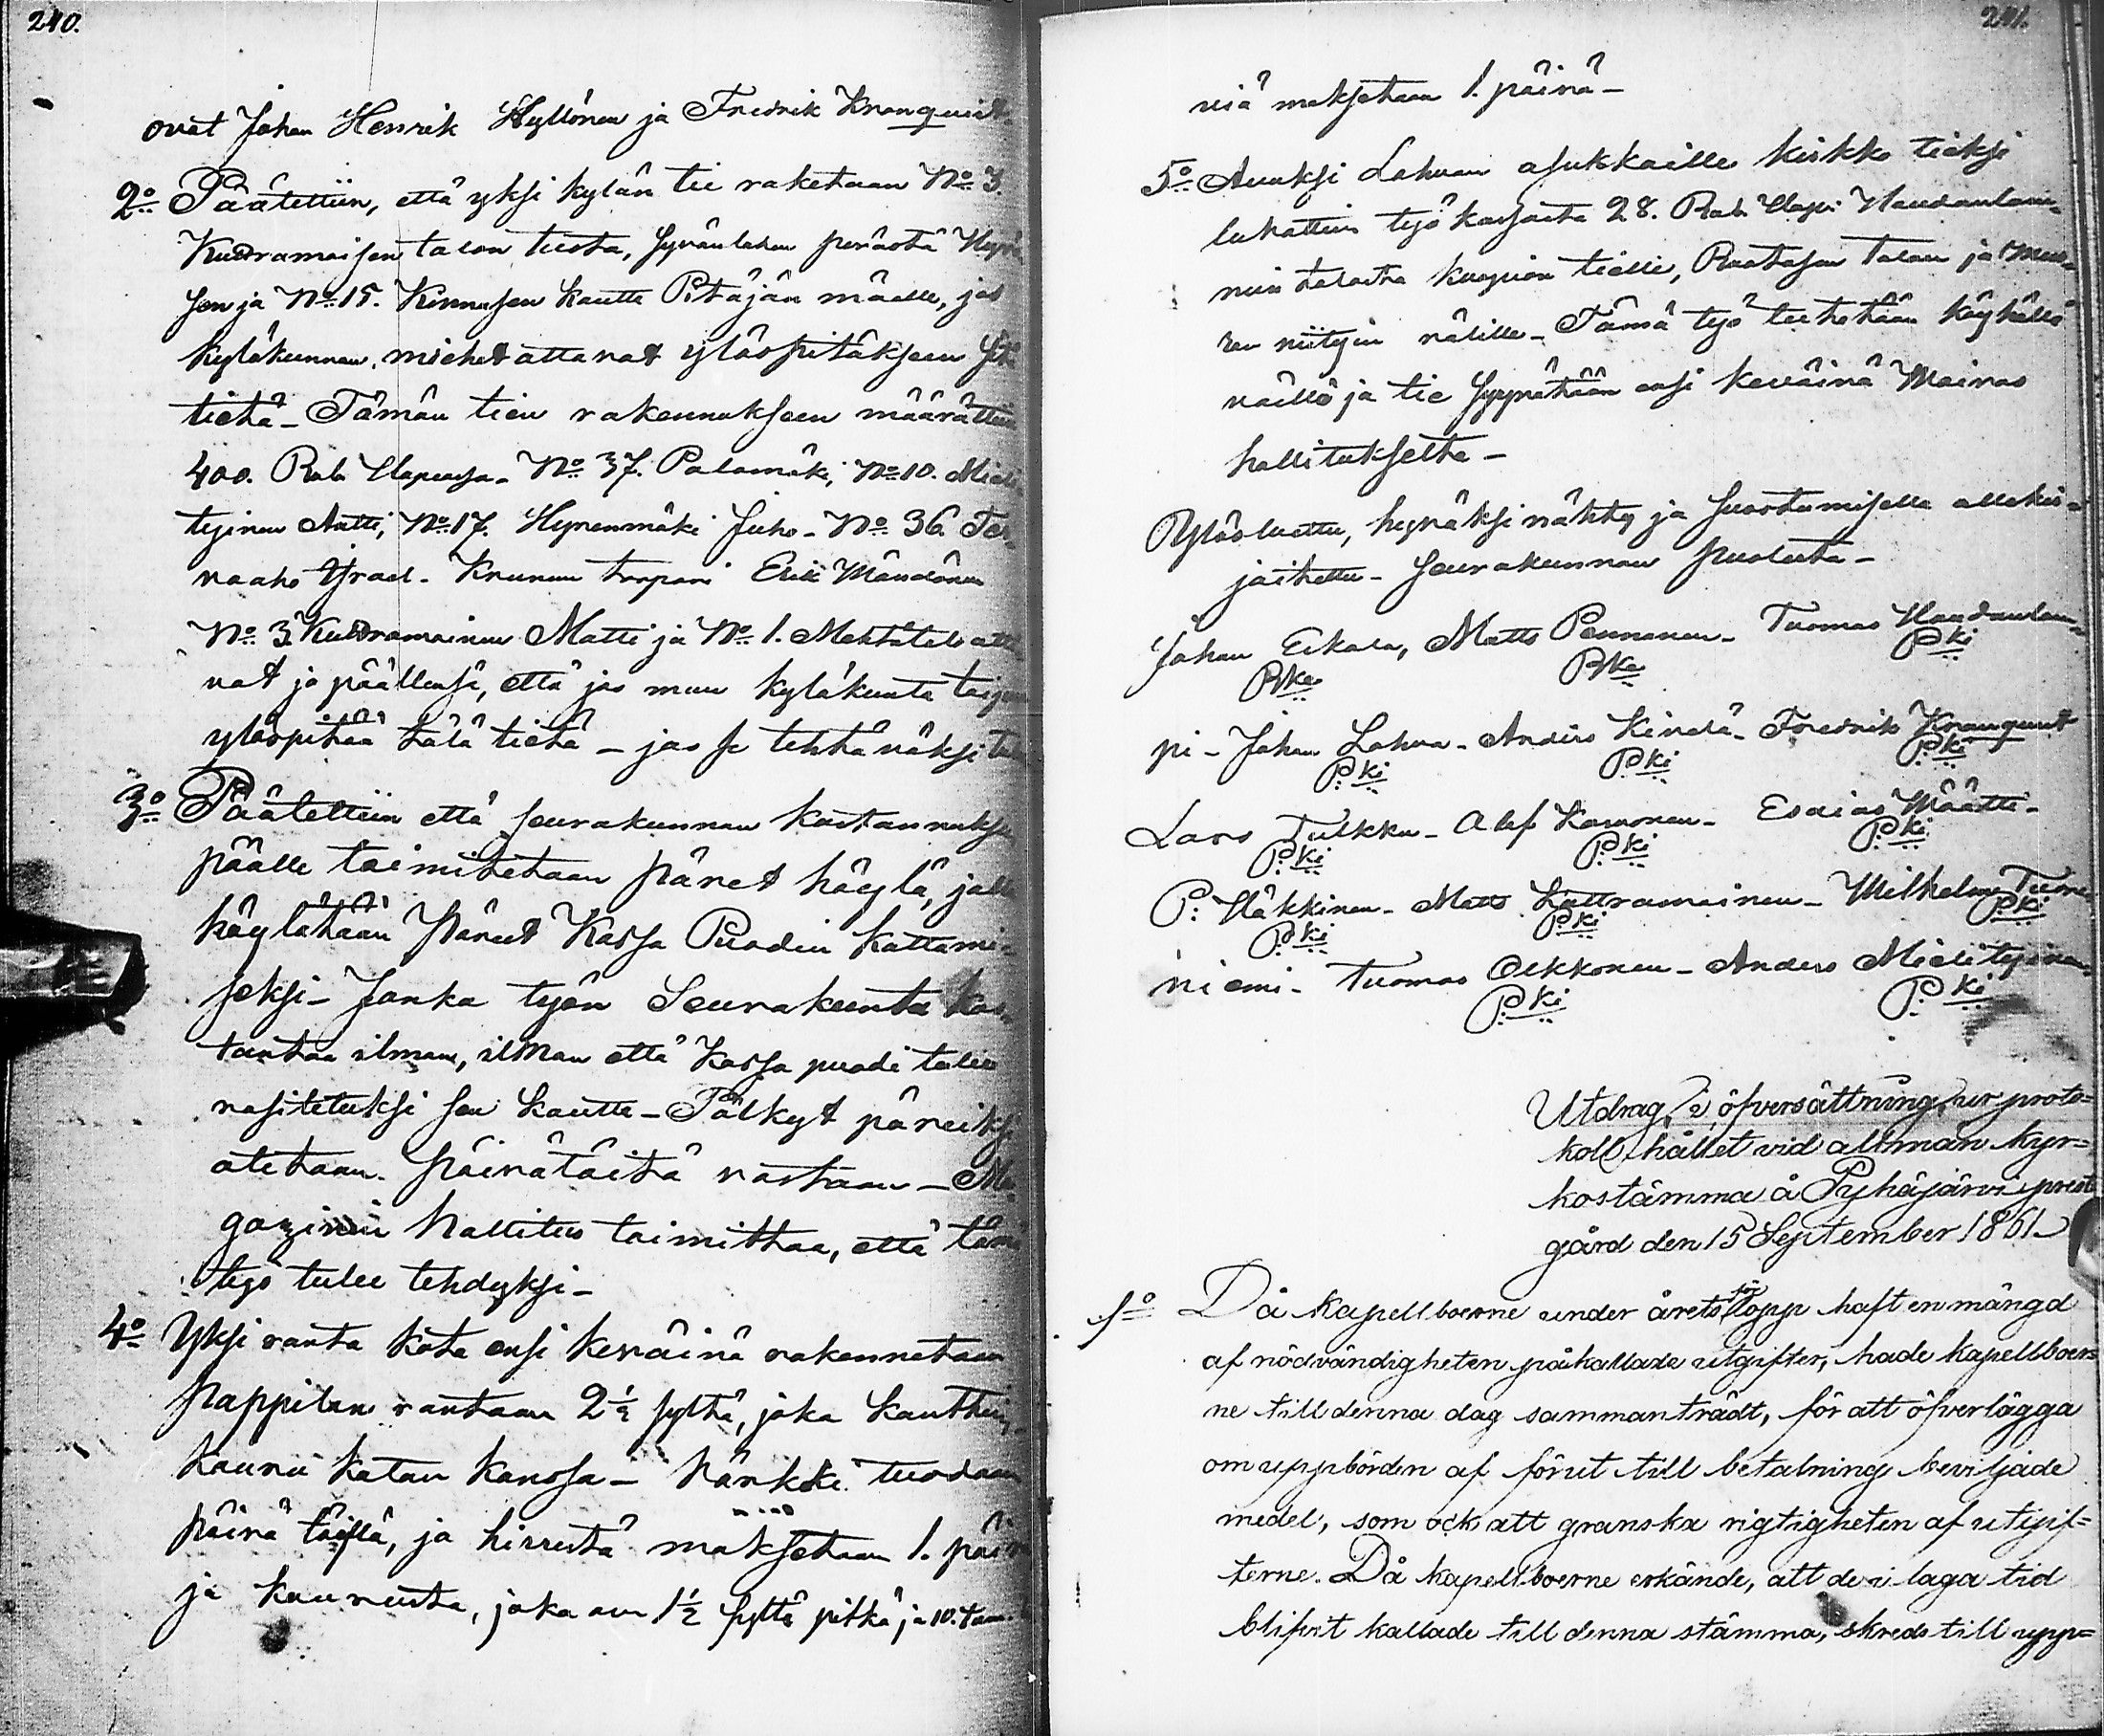 240.
ovat Johan Henrik Hyllönen ja Fredrik Kranquist
2o Päätettiin, että yksi kylän tie raketaan No 3.
Kuoramaisen talon tiesta, syvänlahen perästä
sen ja No 15. Kinnusen kautta Pitäjän mäelle, jos
kyläkunnan miehet attavat ylöspitäksen
tietä - Tämän tien rakennukseen määrättiin
400. Rub. Hapeassa - No 37. Palomäki, No 10. Mieli
tyinen Antti, No 17. Hyvenmäki Juho - No 36. Ter-
vaaho Israel - Krunun torpari Erik Mändönen
No 3. Kuoramainen Matti ja No 1. Mehtätalo atta
vat ja päällensä, että jos muu kyläkunta
ylöspitää tälä tietä - jos se tehtäväksi
3o Päätettiin että seurakunnan kustannuksen
päälle taimitetaan päret höylä, jolla
höylätään Päreet Kassa Puadin kattami-
seksi - Jonka työn Seurakunta kos-
tantaa ilman, ilman että Kassa puadi tulee
rasitetuksi sen kautta - Pölkyt päreiksi
otetaan päivätöitä vastaan - Ma
gazinin hallitus taimittaa, että tämä
työ tulee tehdyksi -
4o Yksi ranta kota ensi keväinä rakennetaan
pappilan rantaan 2 1/2 syltä, joka kanttiin,
kaunu katan kanssa - härkki tuodaan
päivä töillä, ja hirrestä maksetaan 1. päi
ja kaunusta, joka on 1 1/2 syltä pitkä ja 10. tum.
241.
viä maksetaan 1. päivä -
5o Avuksi Lahnan asukkaille kirkko tieksi
luhattiin työ kassasta 28. Rub. Hapi Haudanlam-
min talosta kuopion tielle, Raatasen talon ja
ren niityin välille - Tämä työ teetetään köyhällä
väellä ja tie syynätään ensi keväinä Mairas
hallitukselta -
Ylösluettu, hyväksi nähty ja suostumisella allekir-
joitettu - seurakunnan puolesta -
Johan Eskola, Matts Pennanen - Tuomas Haudanlam-
Pki
pi - Johan Lahna - Anders Kinda - Fredrik Kranquist
Pki Pki Pki
Lars Tulkku - Olof Kamonen - Esaias Määttä -
Pki Pki Pki
P: Häkkinen - Matts Kattramainen - Wilhelm Tiire
Pki Pki Pki
niemi - Tuomas Olkkonen - Anders Mielityinen,
Pki Pki
Utdrag, i öfversättning, ur proto=
koll hållet vid allmän kyr=
kostämma å Pyhäjärvi prest
gård den 15 September 1861.
1o Då kapellboerne under årets förlopp haft en mängd
af nödvändigheten påkallade utgifter, hade kapellboer=
ne till denna dag sammanträdt, för att öfverlägga
om uppbörden af förut till betalning beviljade
medel, som ock att granska rigtigheten af utgif=
terne. Då kapellboerne erkände, att de i laga tid
blifvit kallade till denna stämma, skreds till upp=